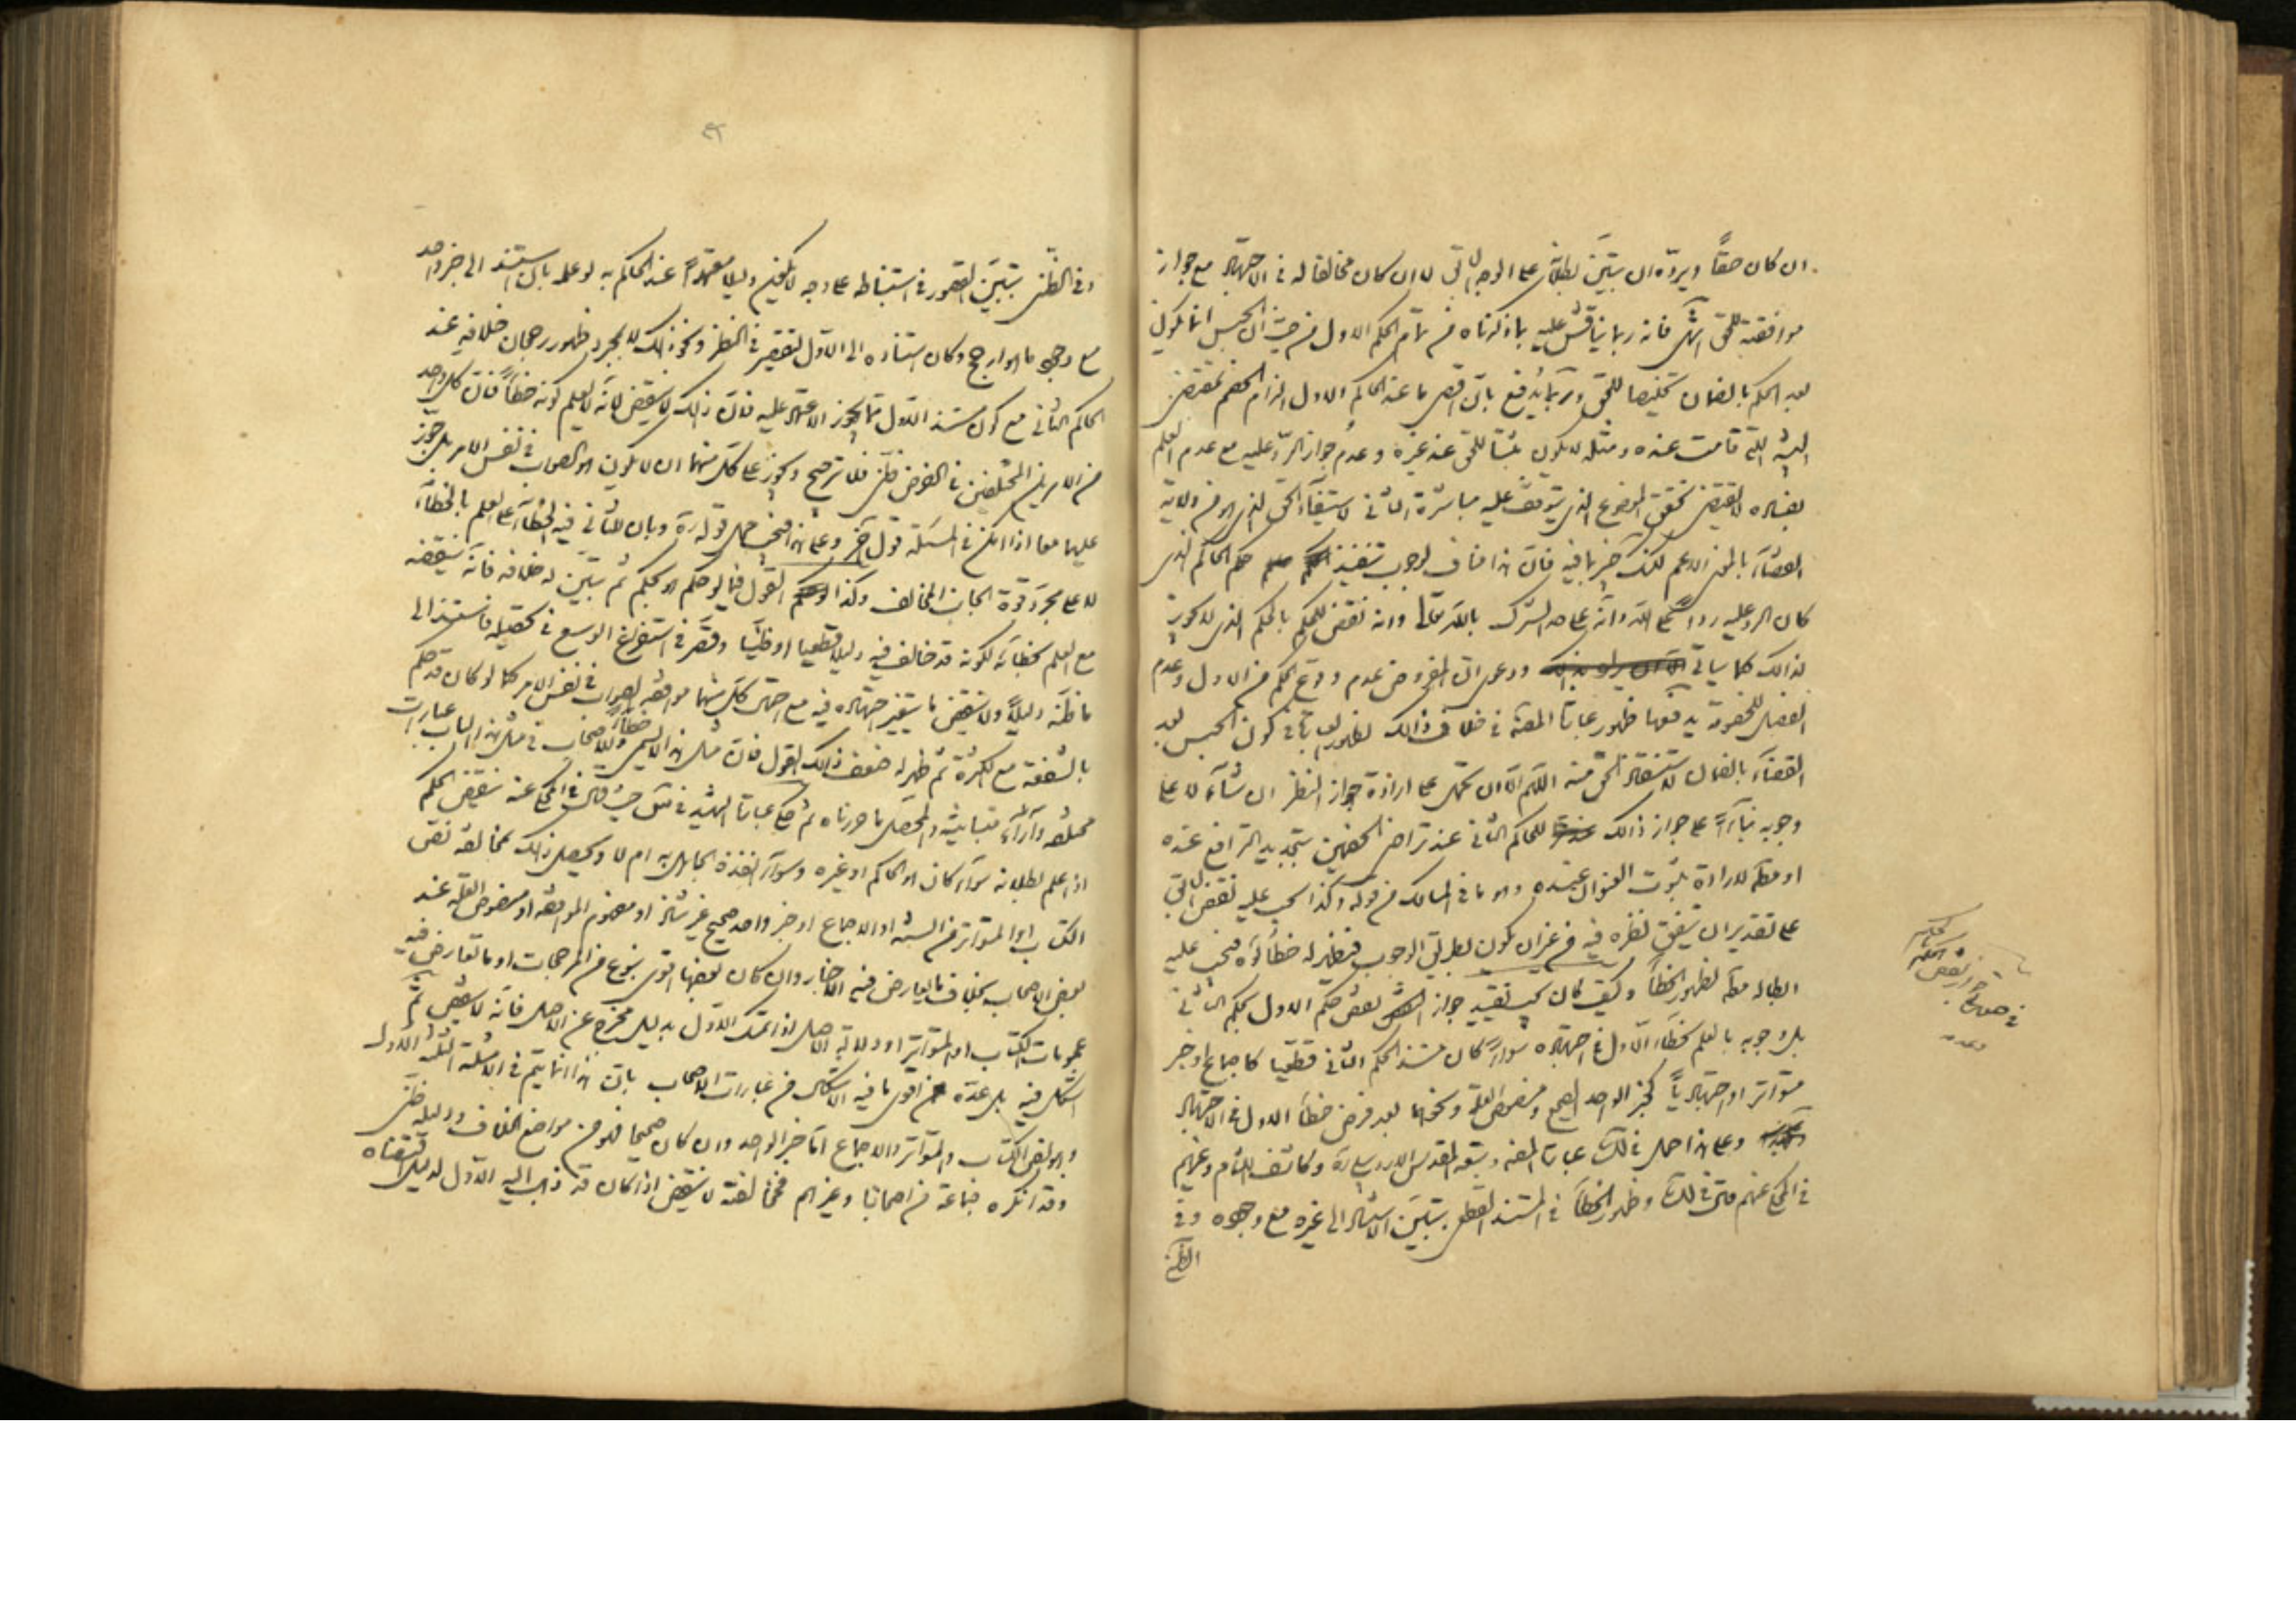 ان كان حقا ويرده ان يتبين بطلانه على الوجه الآتى لا ان كان مخالفا له فى الاجتهاد مع جواز
موافقته للحق انتهى فانه ربما يناقش عليه بما ذكرناه من تمام الحكم الاول من حيث ان الحبس انما يكون
بعد الحكم بالضمان تخليصا للحق وربما يدفع بان اقصى ما عند الحاكم الاول الزام الخصم بمقتضى
البينة التى قامت عنده ومثله لا يكون مثبتا للحق عند غيره وعدم جواز الرد عليه مع عدم العلم
بفساده لا يقتضى تحقق الموضوع الذى يتوقف عليه مباشرة الثانى لاستيفاء الحق الذى هو من ولاية
القضاء بالمعنى الاعم لكنك خبير بما فيه فان هذا مناف لوجوب تنفيذ حكم الحاكم الذى
كان الرد عليه ردا على الله وانه على حد الشرك بالله تعالى وانه نقض للحكم بالحكم الذى لا يجوز
لذلك كما سيأتى ودعوى ان المفروض عدم وقوع الحكم من الاول وعدم
الفصل للخصومة يدفعها ظهور عبارة المصنف فى خلاف ذلك لظهور العبارة فى كون الحبس بعد
القضاء بالضمان لاستنقاذ الحق منه اللهم الا ان تحمل على ارادة جواز النظر ان شاء لا على
وجوبه بناء على جواز ذلك للحاكم الثانى عند تراضى الخصمين بتجديد الترافع عنده
او مطلقا لارادة ثبوت العنوان عنده وهو ما فى المسالك من قوله وكذا يجب عليه نقض الباقى
على تقدير ان يتفق نظره فيه من غير ان يكون بطريق الوجوب فيظهر له خطاؤه فيجب عليه
ابطاله مطلقا لظهور الخطأ وكيف كان يجب تقييد جواز نقض حكم الاول بحكم الثانى
بل وجوبه بالعلم بخطاء الاول فى اجتهاده سواء كان مستند الحكم الثانى قطعيا كاجماع او خبر
متواتر او اجتهاديا كخبر الواحد الصحيح ومنصوص العلة ونحوهما بعد فرض خطأ الاول فى الاجتهاد
وعلى هذا حمل فى لك عبارة المصنف وتبعه المقدس الاردبيلى وكاشف اللثام وغيرهم
فى المحكى عنهم قال فى لك وظهور الخطأ فى المستند القطعى يتبين الاستناد الى غيره مع وجوده وفى
الظنى
فى جواز نقض الحكم بالحكم وعدمه
وفى الظنى بتبين القصور فى استنباطه على وجه لا يكون دليلا معتمدا عند الحاكم به لو علم بان استند الى خبر واحد
مع وجود ما هو ارجح وكان استناده الى الاول لتقصير فى النظر ونحو ذلك لا بمجرد ظهور رجحان خلافه عند
الحاكم الثانى مع كون مستند الاول مما يجوز الاعتماد عليه فان ذلك لا ينقض لانه لا يعلم كونه خطأ فان كل واحد
من الامرين المختلفين فى الفرض ظنى فلا ترجيح ويجوز على كل منهما ان لا يكون هو الصواب فى نفس الامر بل يجوز
عليهما معا اذا امكن فى المسئلة قول آخر وعلى هذا فيجب حمل قوله ره وبان للثانى فيه الخطأ على العلم بالخطاء
لا على مجرد قوة الجانب المخالف وكذا القول فيما لو حكم هو بحكم ثم تبين له خلافه فانه ينقضه
مع العلم بخطائه لكونه قد خالف فيه دليلا قطعيا او ظنيا وقصر فى استفراغ الوسع فى تحصيله فاستند الى
ما ظنه دليلا ولا ينقض ما يتغير اجتهاده فيه مع احتمال كل منهما موافقة الصواب فى نفس الامر كما لو كان قد حكم
بالشفعة مع الكثرة ثم ظهر له ضعف ذلك القول فان مثل هذا لا يسمى خطأ وللاصحاب فى مثل هذا الباب عبارات
مختلفة وآراء متباينة والمحصل ما حررناه ثم حكى عبارة الشهيد فى س حيث قال فى المحكى عنه ينقض الحكم
اذا علم بطلانه سواء كان هو الحاكم او غيره وسواء انفذه الجاهل به ام لا ويحصل ذلك بمخالفة نص
الكتاب او المتواتر من السنة او الاجماع او خبر واحد صحيح غير شاذ او مفهوم الموافقة او منصوص العلة عند
بعض الاصحاب بخلاف ما تعارض فيه الاخبار وان كان بعضها اقوى بنوع من المرجحات او ما تعارض فيه
عمومات الكتاب او المتواتر او دلالة الاصل اذا تمسك الاول بدليل مخرج عن الاصل فانه لا ينقض ثم
اشكل فيه بل عده من اقوى ما فيه الاشكال من عبارات الاصحاب بان هذا انما يتم فى الامثلة الثلثة الاول
وهو نص الكتاب والمتواتر والاجماع اما خبر الواحد وان كان صحيحا فهو من مواضع الخلاف ودليله ظنى
وقد انكره جماعة من اصحابنا وغيرهم فمخالفته لا ينقض اذا كان قد ذهب اليه الاول لدليل اقتضاه